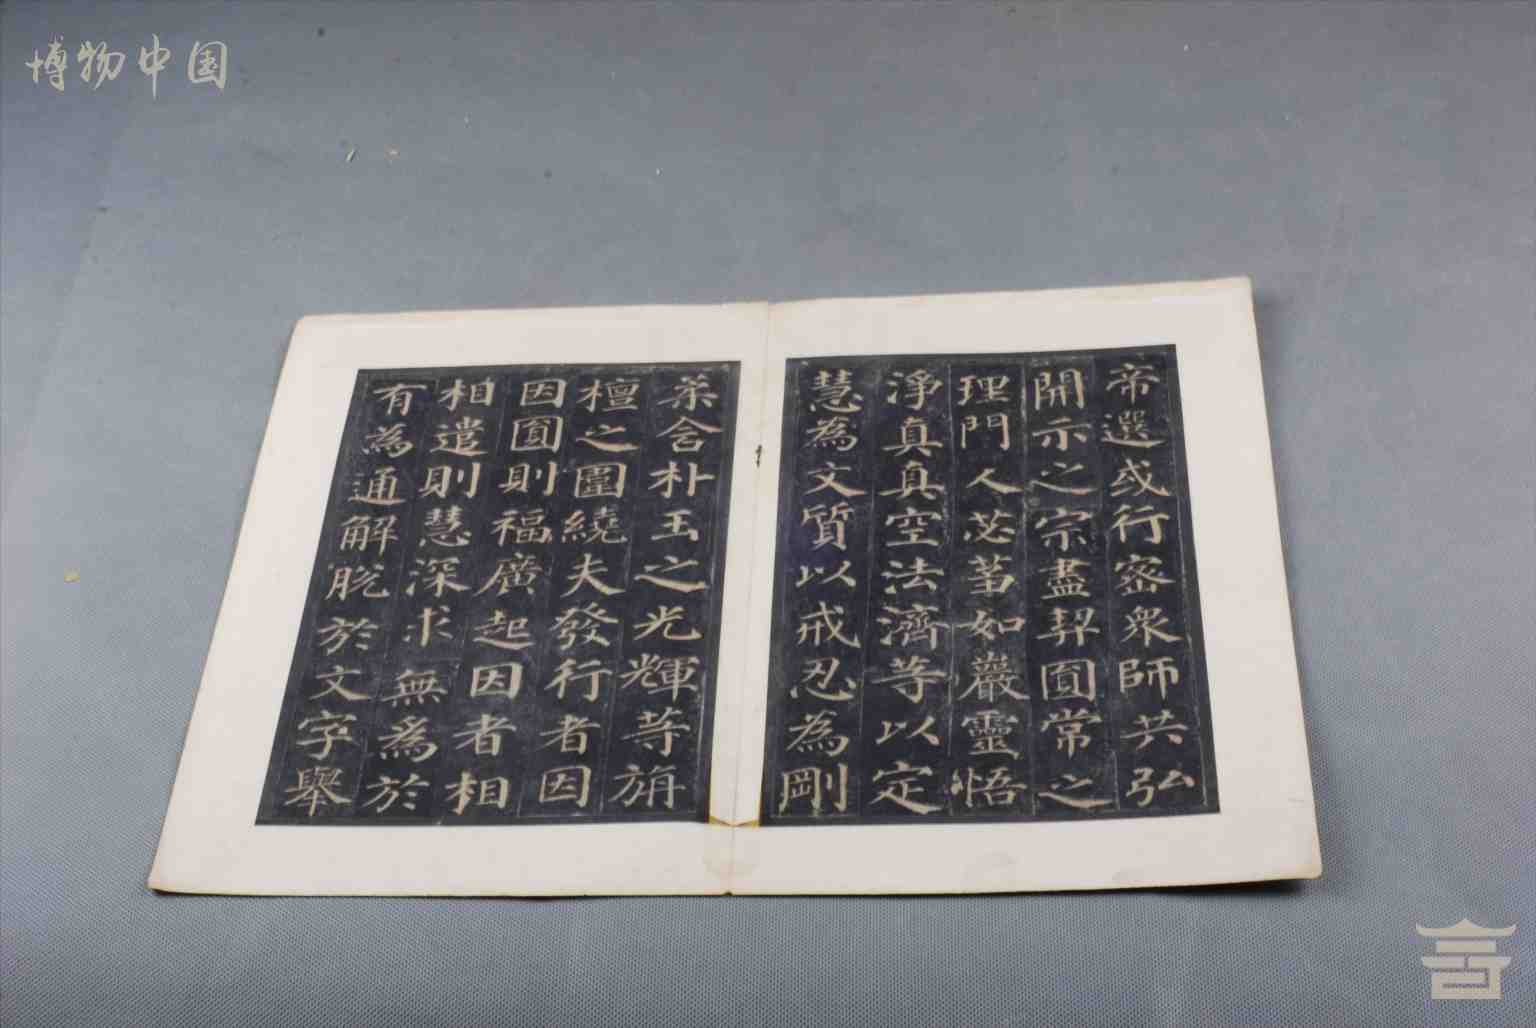 博物中国
帝選或行密衆師共弘
開示之宗盡契圎常之
理門人苾蒭如巖靈悟
淨真真空法濟等以定
慧為文質以戒忍為剛
柔含朴玉之光輝等旃
檀之圍繞夫發行者因
因圎則福廣起因者相
相遣則慧深求無爲於
有為通解脫於文字舉